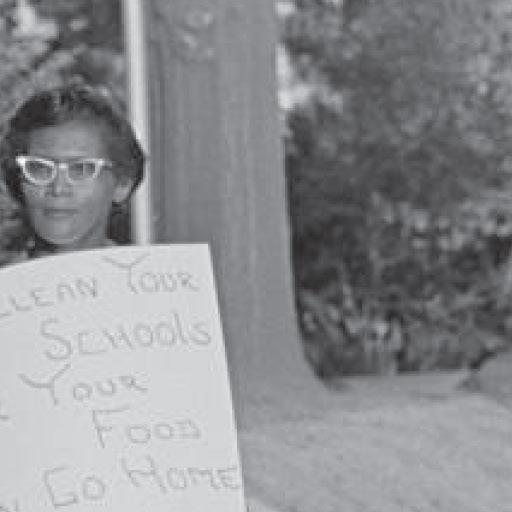 CLEAN YOUR
SCHOOLS
YOUR
FOOD
GO HOME